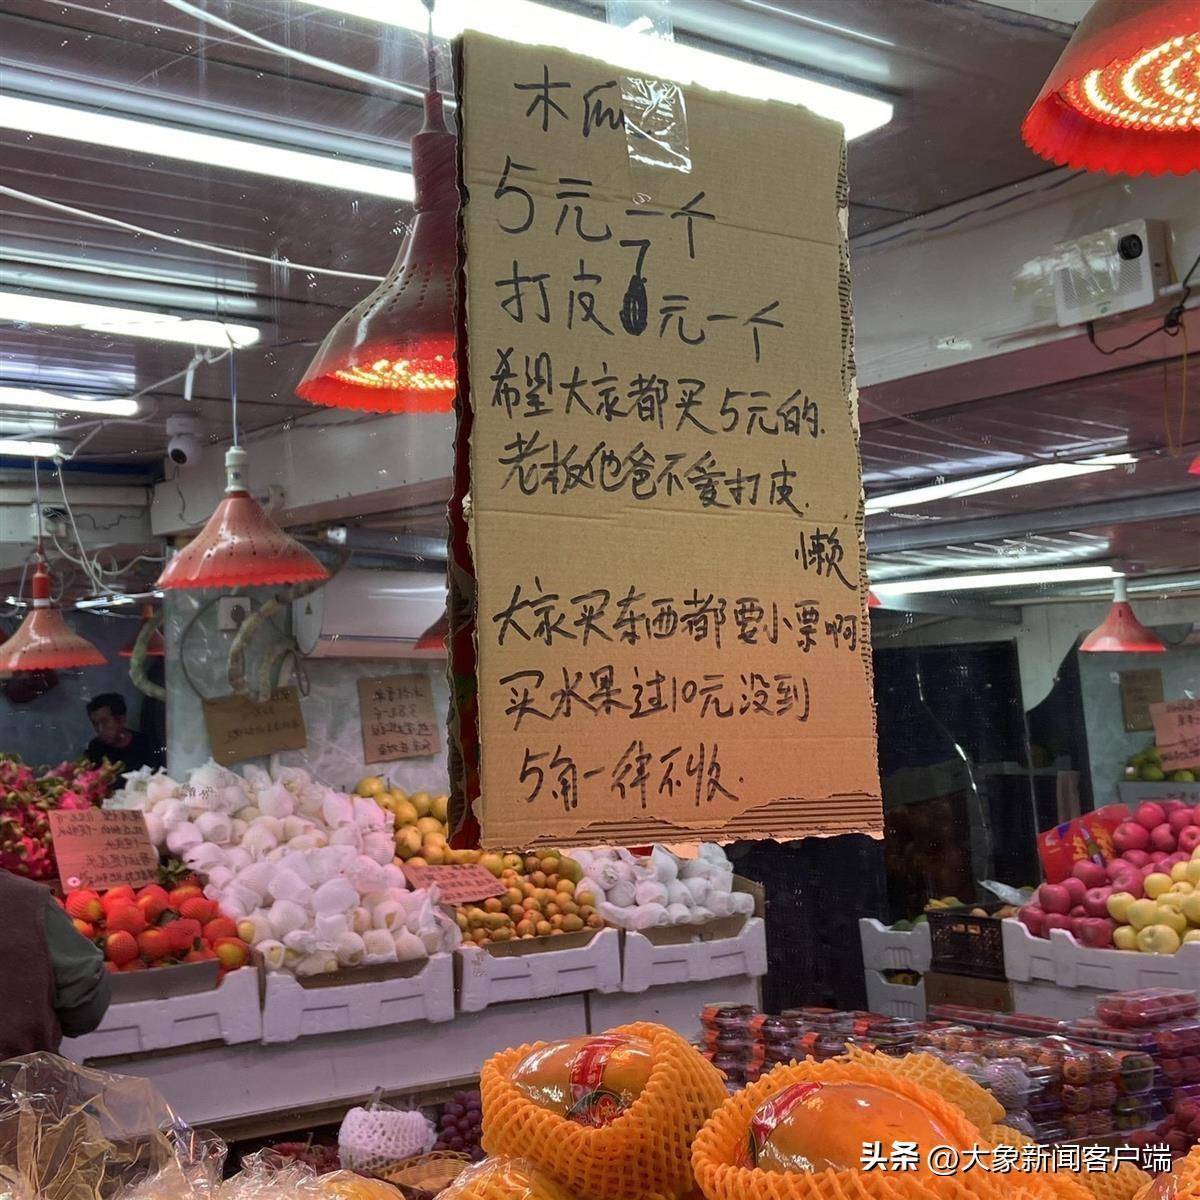 木瓜
5元一个
打皮7元一个
希望大家都买5元的.
老板他爸不爱打皮.
懒
大家买东西都要小票啊
买水果过10元没到
5角一律不收.
头条 @大象新闻客户端